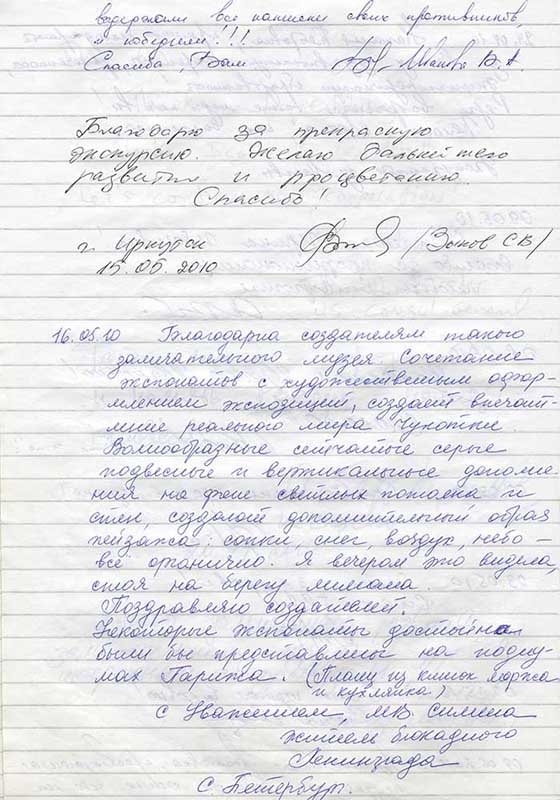 выдержали все натиски своих противников,
и победили!!!
Спасибо Вам Иванова В.А.
Благодарю за прекрасную
экскурсию. Желаю дальнейшего
развития и процветанию.
Спасибо!
г. Иркутск /Зыков СВ/
15.05.2010
16.05.10 Благодарна создателям такого
замечательного музея. Сочетание
экспонатов с художественным офор-
млением экспозиций, создает впечат-
ление реального мира Чукотки.
Волнообразные сетчатые серые
подвесные и вертикальные дополне-
ния на фоне светлых потолка и
стен, создают дополнительный образ
пейзажа: сопки, снег, воздух, небо –
всё органично. Я вечером это видела,
стоя на берегу лимана.
Поздравляю создателей.
Некоторые экспонаты достойны
были бы представлены на подиу-
мах Парижа. (Плащ из кишок моржа
и кухлянка)
С Уважением, М.В. Симина
житель блокадного
Ленинграда
С. Петербург.